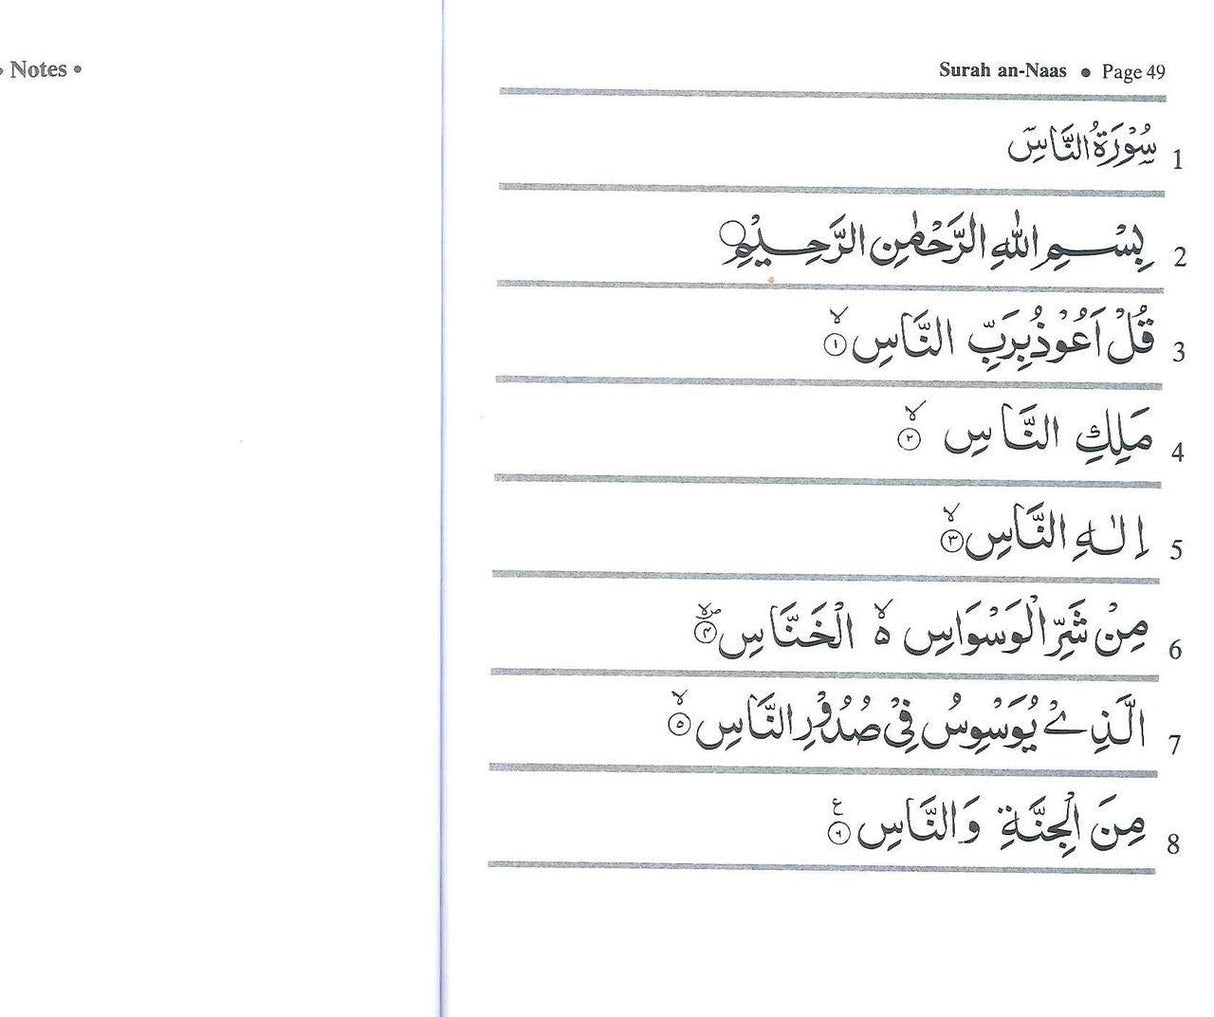 • Notes •
Surah an-Naas • Page 49
سُوْرَةُ النَّاسِ 1
بِسْمِ اللهِ الرَّحْمٰنِ الرَّحِيْمِ 2
قُلْ اَعُوْذُ بِرَبِّ النَّاسِ ۙ﴿۱﴾ 3
مَلِكِ النَّاسِ ۙ﴿۲﴾ 4
اِلٰهِ النَّاسِ ۙ﴿۳﴾ 5
مِنْ شَرِّ الْوَسْوَاسِ ۙ۬ الْخَنَّاسِ ﴿۴﴾ 6
الَّذِيْ يُوَسْوِسُ فِيْ صُدُوْرِ النَّاسِ ۙ﴿۵﴾ 7
مِنَ الْجِنَّةِ وَالنَّاسِ ﴿۶﴾ع 8